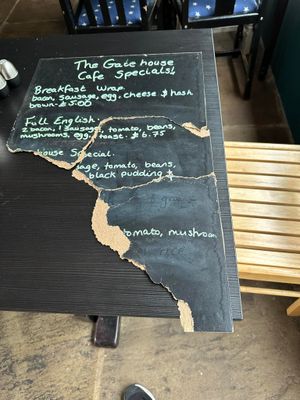 The Gate house
Cafe Specials!
Breakfast Wrap
bacon, sausage, egg, cheese & hash
brown £5.00
Full English:
2 bacon, 1 sausage, tomato, beans,
mushrooms, egg, toast. £6.75
house Special:
sage, tomato, beans,
black pudding &
tomato, mushroom